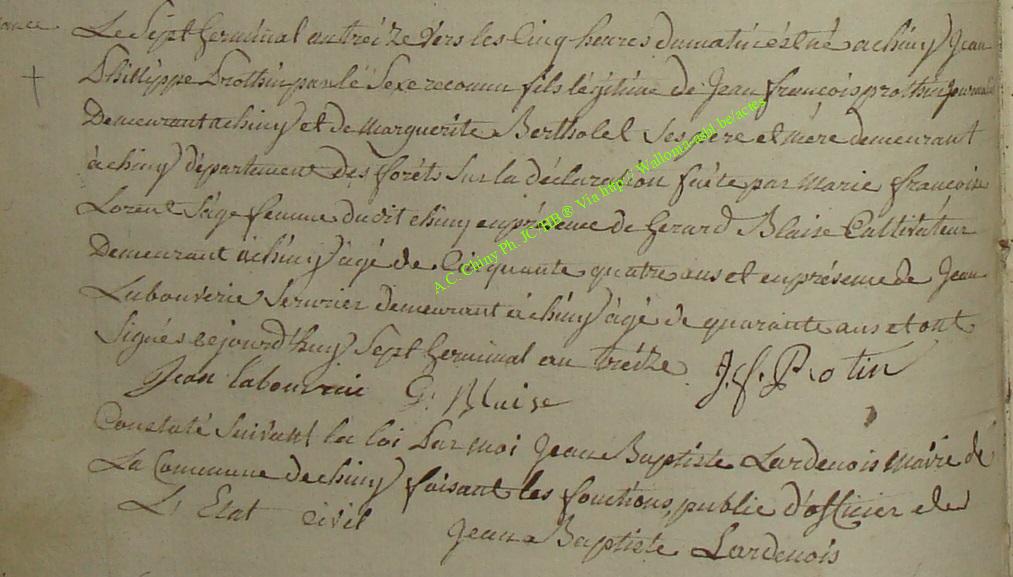 Le Sept Germinal an treize vers les Cinq heures du matin est né a chiny Jean
Phillippe Prothin par lé Sexe reconnu fils légitime de Jean françois prothin journalié
Demeurant a chiny et de Marguerite Bertholet Ses pere et mère demeurant
à chiny département des foréts Sur la déclaration faite par Marie francoise
Lorent Sage femme du dit chiny en présence de Gerard Blaise Cultivateur
Demeurant à chiny agé de Cinquante quatre ans et en présence de Jean
Labouverie Serurier demeurant à chiny âgé de quarante ans et ont
Signés ce jourd'huy Sept Germinal an treitze J. f. Protin
Jean labouverie G. Blaise
Constaté Suivant la loi Par moi Jean Baptiste Lardenois Maire de
La Commune de chiny faisant les fonctions public d'officier de
L'Etat civil Jean Baptiste Lardenois
A.C. Chiny Ph. JC HB ® Via http:// Wallonia-asbl.be/actes